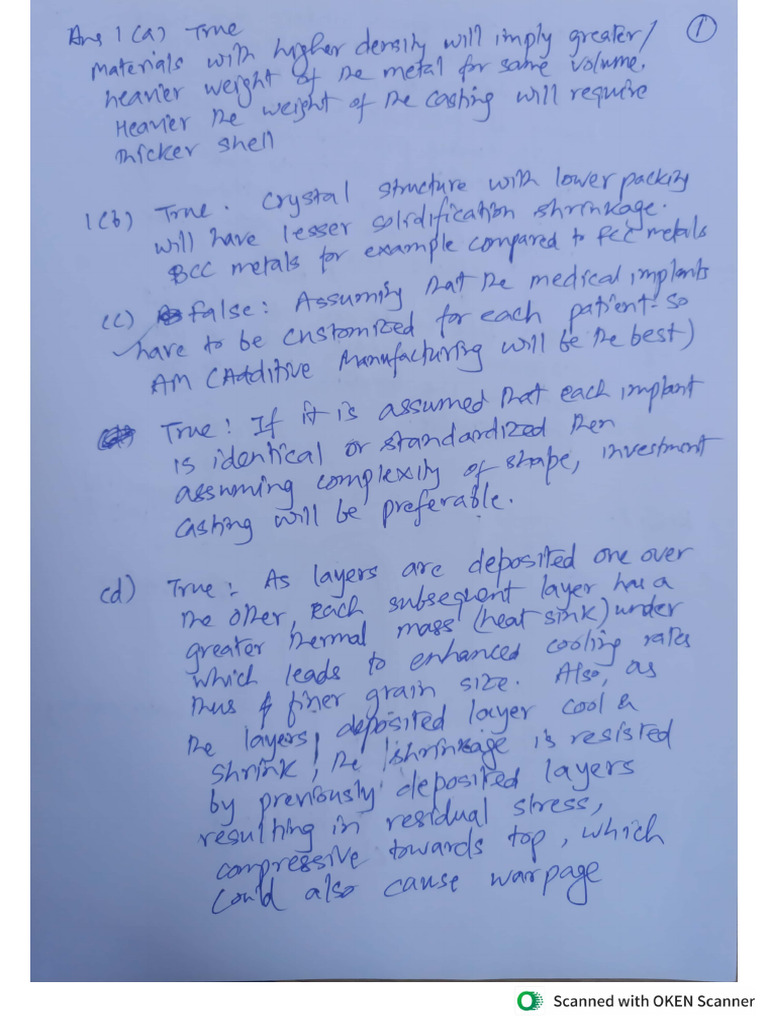 1
Ans 1 (a) True
Materials with higher density will imply greater/
heavier weight of the metal for same volume.
Heavier the weight of the casting will require
thicker shell
1(b) True. Crystal structure with lower packing
will have lesser solidification shrinkage.
BCC metals for example compared to FCC metals
(c) False: Assuming that the medical implants
have to be customized for each patient- so
AM (Additive Manufacturing will be the best)
True: If it is assumed that each implant
is identical or standardized then
assuming complexity of shape, investment
casting will be preferable.
(d) True: As layers are deposited one over
the other, each subsequent layer has a
greater thermal mass (heat sink) under
which leads to enhanced cooling rates
thus & finer grain size. Also, as
the layers, deposited layer cool &
shrink, the shrinkage is resisted
by previously deposited layers
resulting in residual stress,
compressive towards top, which
could also cause warpage
Scanned with OKEN Scanner